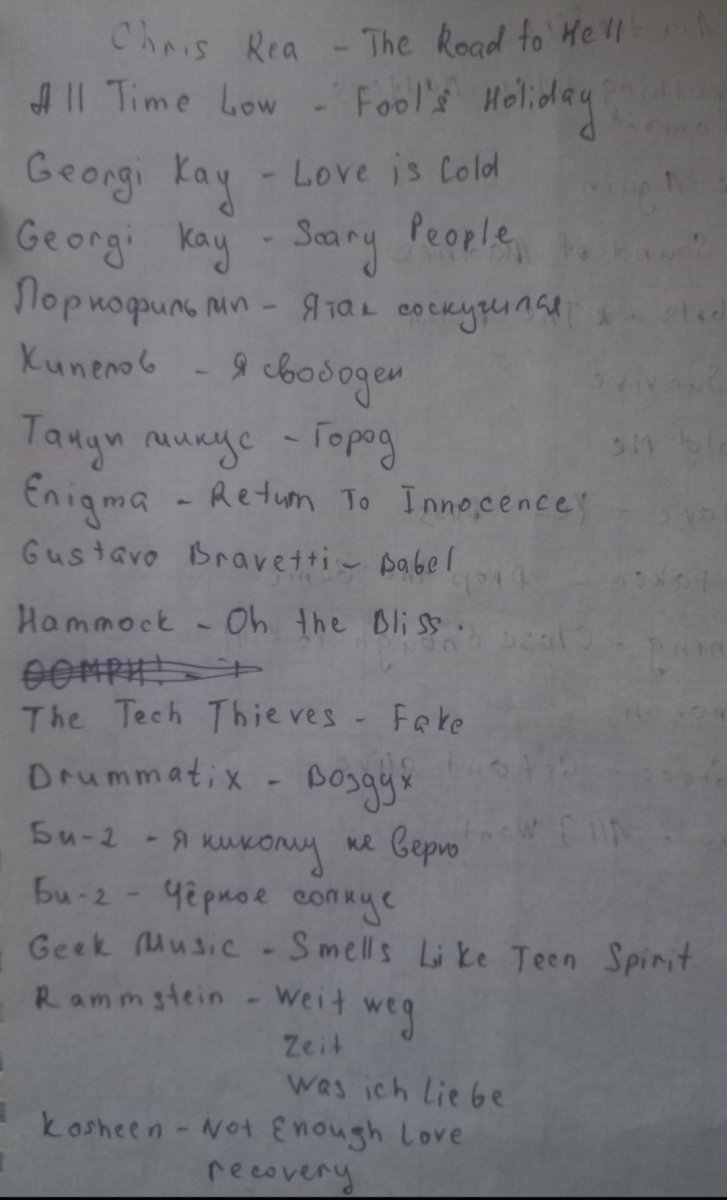 Chris Rea - The Road to Hell
All Time Low - Fool's Holiday
Georgi Kay - Love is Cold
Georgi Kay - Scary People
Порнофильмы - Я так соскучился
Кипелов - Я свободен
Танцы минус - Город
Enigma - Return To Innocence
Gustavo Bravetti - Babel
Hammock - Oh the Bliss.
OOMPH! -
The Tech Thieves - Fake
Drummatix - Воздух
Би-2 - Я никому не верю
Би-2 - Чёрное солнце
Geek Music - Smells Like Teen Spirit
Rammstein - Weit weg
Zeit
Was ich liebe
Kosheen - Not Enough Love
recovery